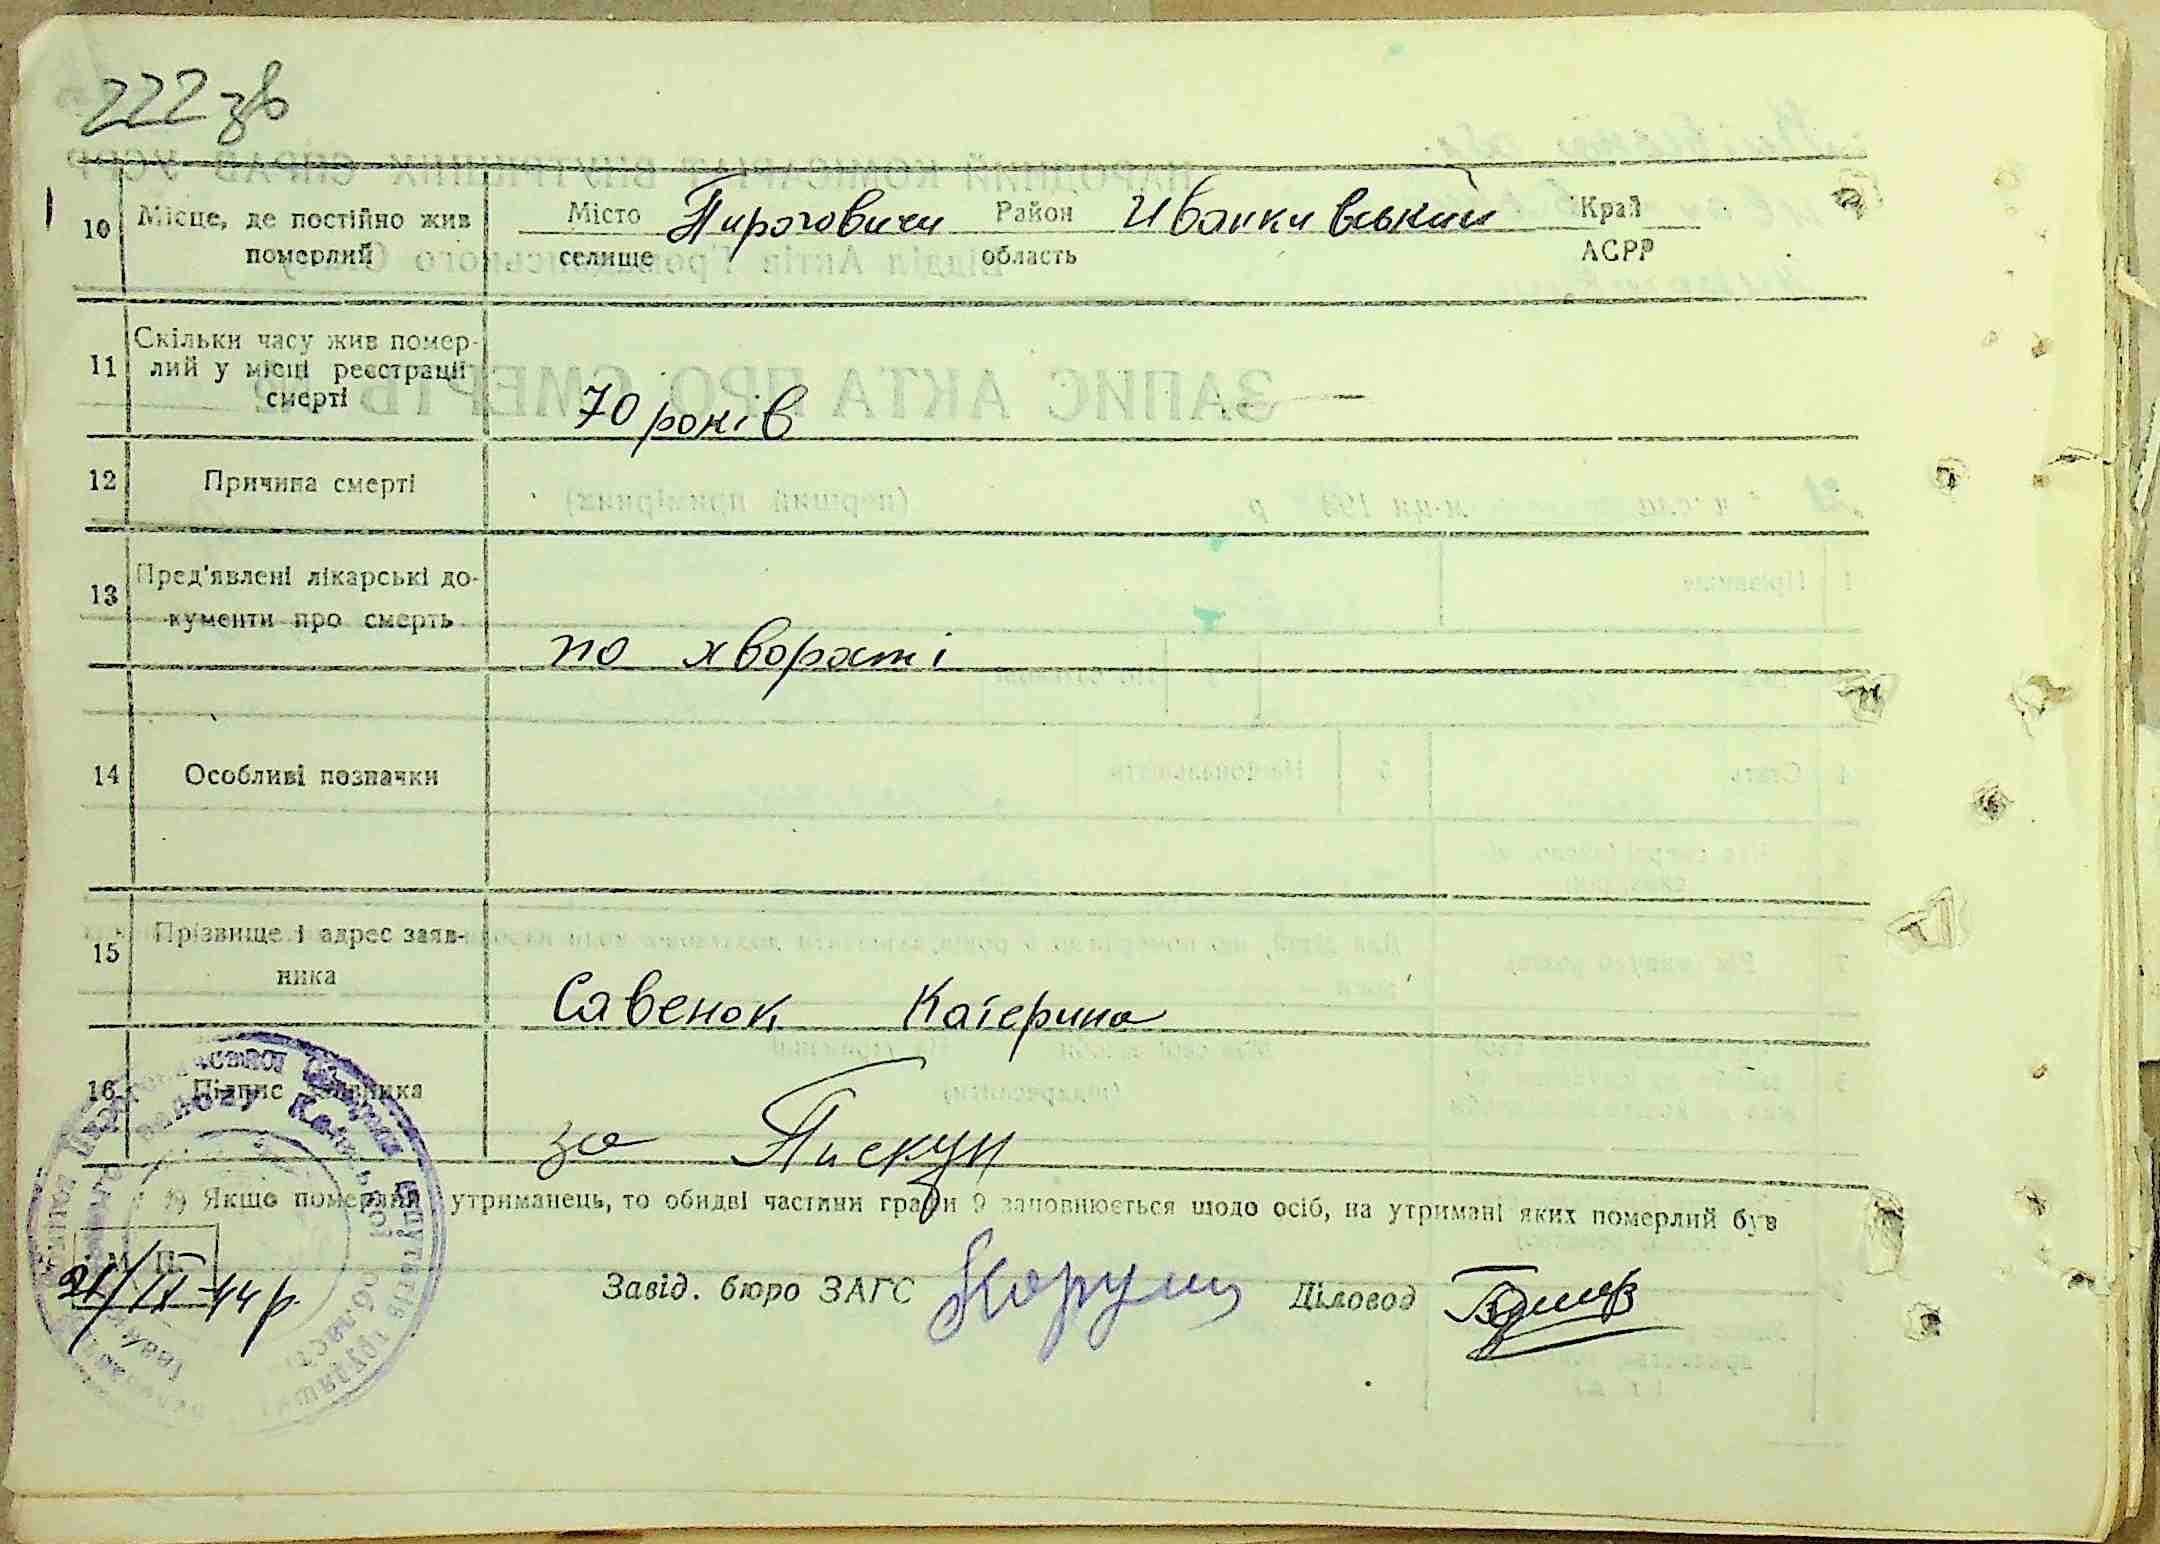 222 зв
10 Місце, де постійно жив померлий
Місто селище Пироговичи Район область Иванкивський Край АСРР
11 Скільки часу жив помер-
лий у місці реєстрації
смерті
70 років
12 Причина смерті
13 Пред'явлені лікарські до-
кументи про смерть
по хвораті
14 Особливі позначки
15 Прізвище і адрес заяв-
ника
Савенок Катерина
16 Підпис заявника
за Пискун
1) Якщо померлий утриманець, то обидві частини графи 9 заповнюється щодо осіб, на утримані яких померлий був
М П.
Завід. бюро ЗАГС Діловод